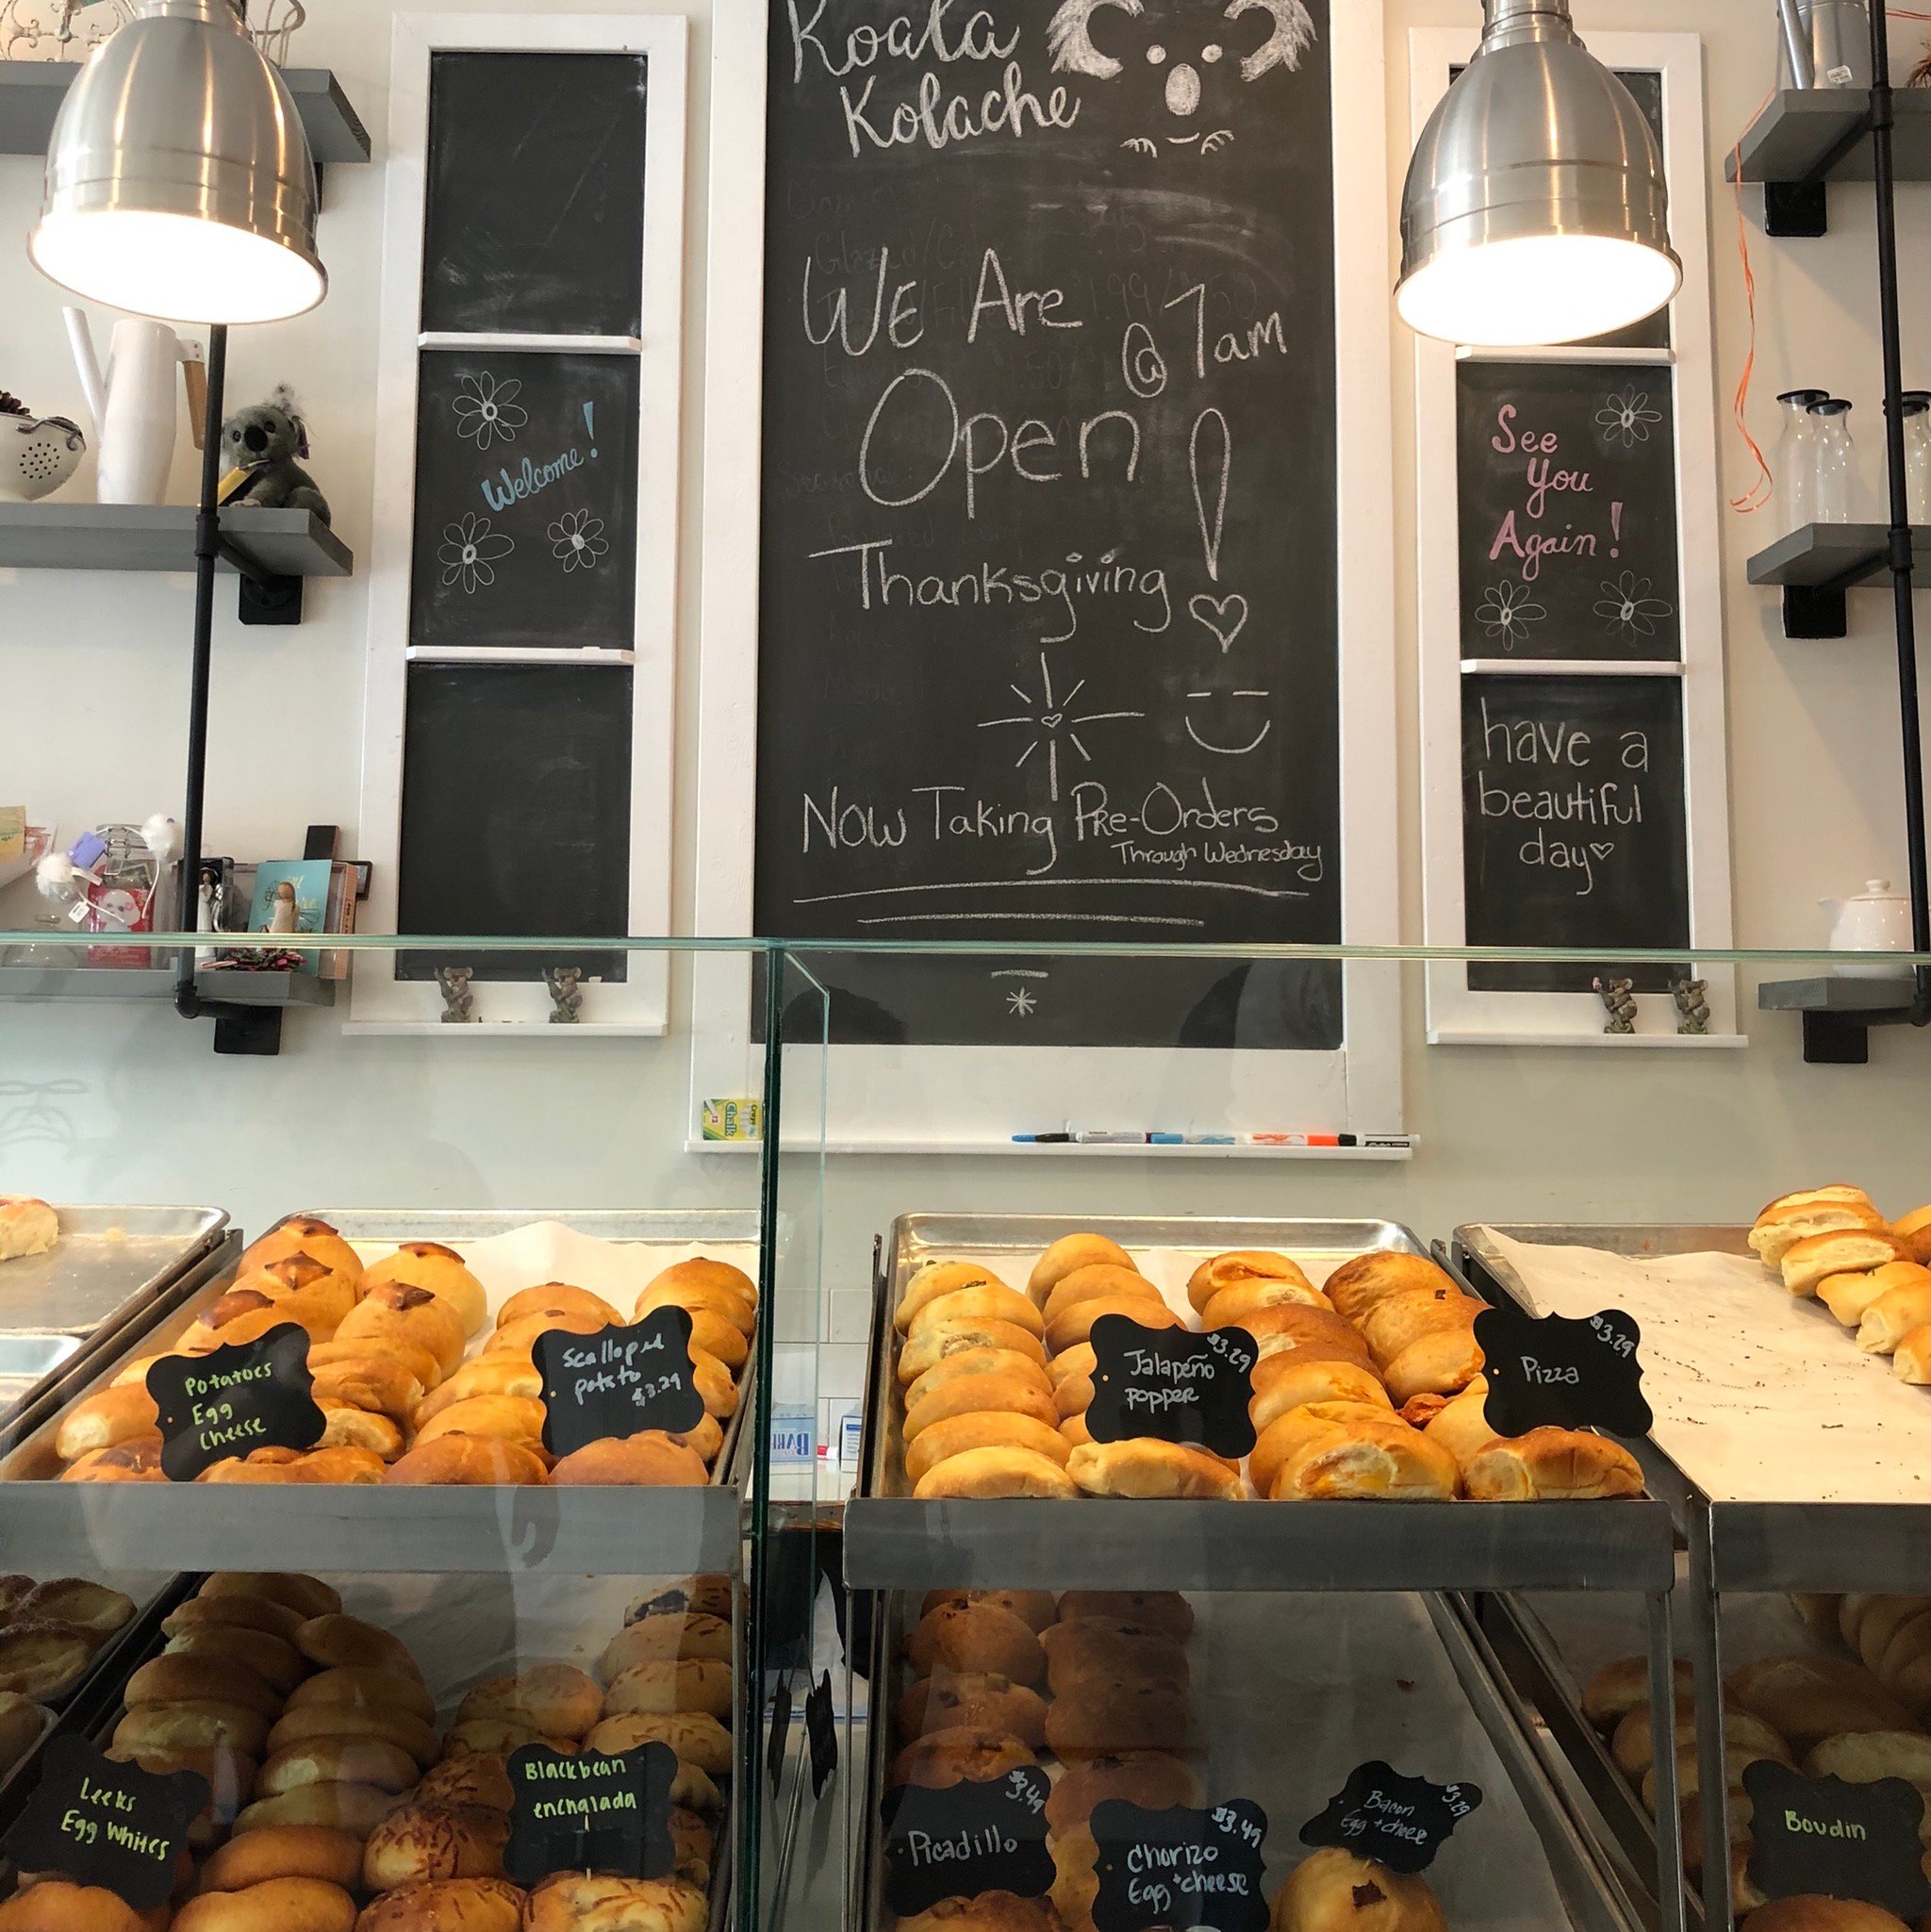 Koala
Kolache
WE Are
@ 7am
Open!
Thanksgiving
Now Taking Pre-Orders
Through Wednesday
Welcome!
See
You
Again!
have a
beautiful
day
Chalk
Potatoes
Egg
Cheese
Scalloped
potato
$3.29
$3.29
Jalapeño
popper
$3.29
Pizza
Leeks
Egg Whites
Blackbean
enchalada
$3.49
Picadillo
$3.49
Chorizo
Egg + cheese
$3.29
Bacon
Egg + cheese
Boudin